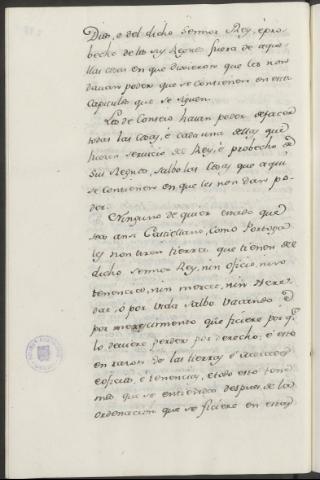 Dios, e del dicho Sennor Rey, é pro-
becho de los sus Regnos fuera de aque-
llas cosas en que dixieron que les non
davan poder que se contienen en estos
Capitulos que se siguen.
Los de Consejo haian poder de facer
todas las cosas, é cada una dellas que
fueren servicio del Rey, é probecho de
sus Regnos, salbo las cosas que aqui
se contienen en que les non dan po-
der.
Ninguno de quier estado que
sea ansi Castellano, como Portoga-
les non tiren tierra que tienen del
dicho Sennor Rey, nin oficio, nin
tenencia, nin merced, nin here-
dat, ó por vida salbo vacando, ó
por merescimento que ficiere por que
lo deviere perder por derecho, é esto
en razon de las tierras é
e oficios, é tenencias, e todo esto
que se entienda despues de la
ordenacion que se ficiere en estas